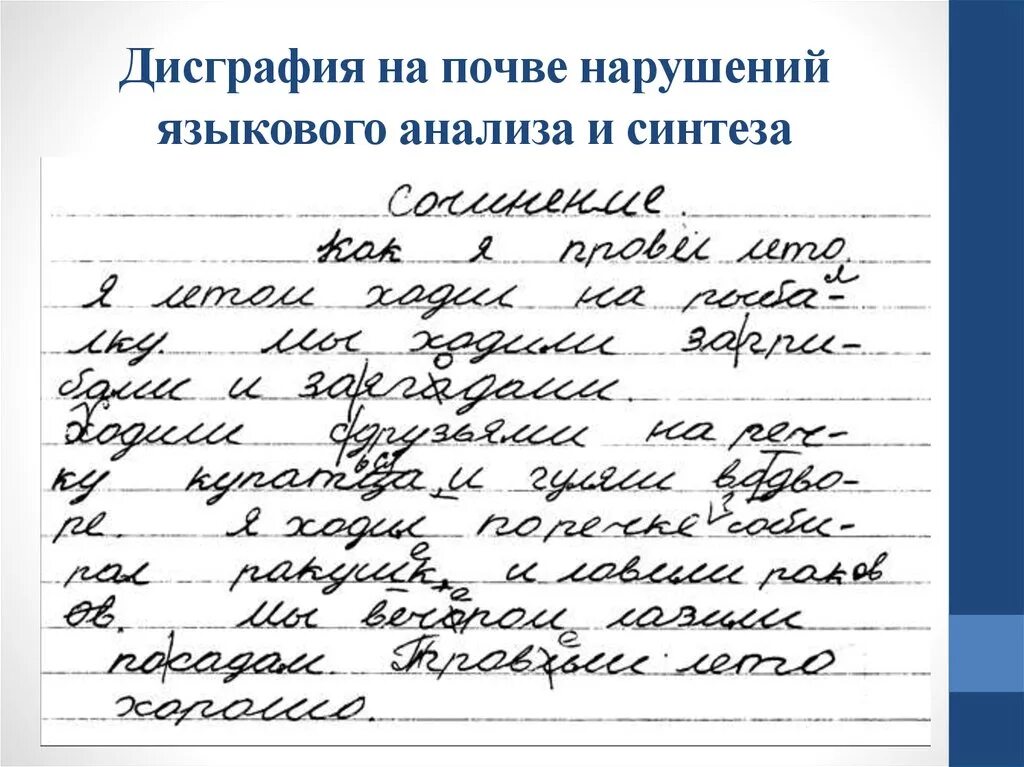 Дисграфия на почве нарушений
языкового анализа и синтеза
Сочинение.
Как я провел лето.
Я летом ходил на рыба-
лку. Мы ходили загри-
бами и заягадами.
Ходили сдрузьями на реч-
ку купатца, и гуляли водво-
ре. Я ходил поречке соби-
рал ракушк, и ловили раков
ов. Мы вечором лазили
посадам. Провели лето
хорошо.